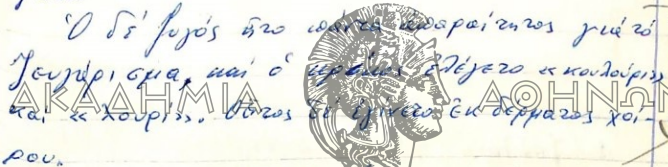 Ὁ δέ ζυγός ἦτο πάντα ἀπαραίτητος γιά τό
ζευγάρισμα, καί ὁ κρίκος ἐλέγετο «κουλούρι»
καί «λουρί». Οὗτος δέ ἐγίνετο ἐκ δέρματος χοί-
ρου.
ΑΚΑΔΗΜΙΑ ΑΘΗΝΩΝ